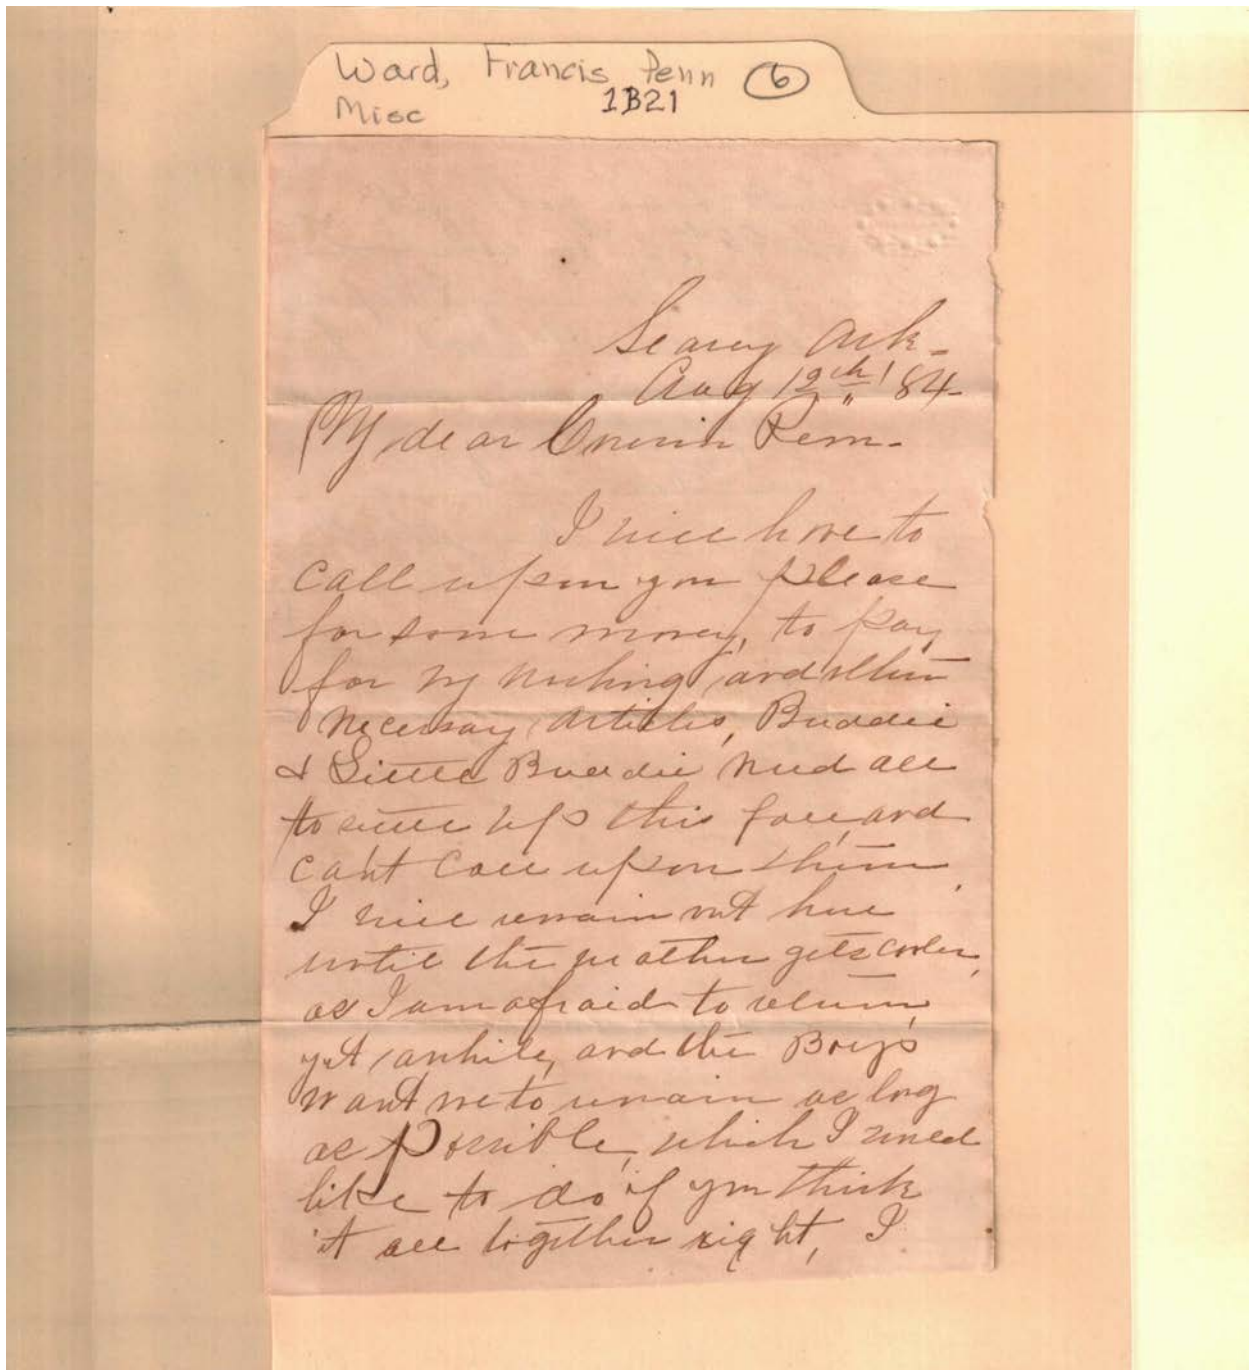 Ward, Francis Penn 6
Misc 1B21
Searcy Ark-
Aug 12th '84-
My dear Cousin Penn-
I will have to
call upon you please
for some money, to pay
for my washing, and other
necessary articles, Buddie
& Little Buddie need all
to settle up this fall, and
can't call upon them,
I will remain out here
until the weather gets cooler,
as I am afraid to return
yet awhile, and the Boys
want me to remain as long
as possible, which I would
like to do if you think
it all together right, I